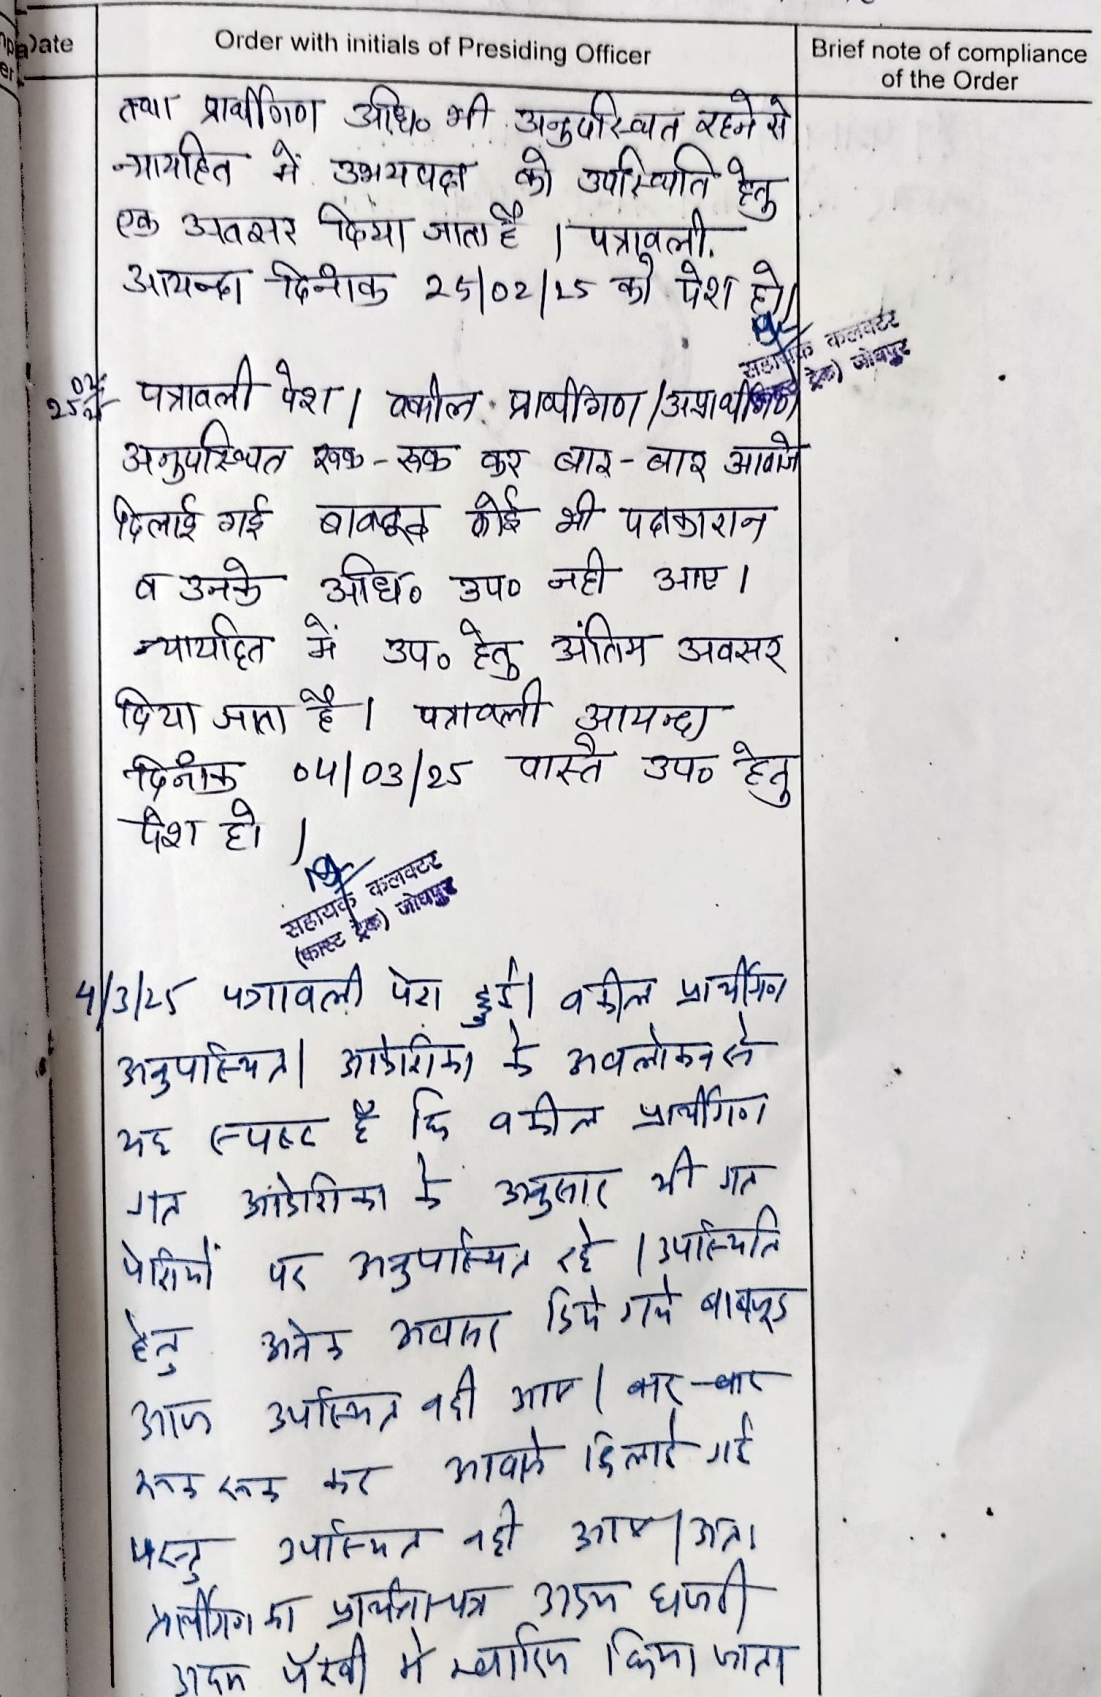 Date
Order with initials of Presiding Officer
Brief note of compliance
of the Order
तथा प्रार्थीगण अधि० भी अनुपस्थित रहने से
न्यायहित में उभयपक्ष को उपस्थिति हेतु
एक अवसर दिया जाता है । पत्रावली
आयन्दा दिनांक 25/02/25 को पेश हो।
सहायक कलक्टर
ट्रेक) जोधपुर
25/02/25 पत्रावली पेश । वकील प्रार्थीगण /अप्रार्थीगण
अनुपस्थित रूक - रूक कर बार - बार आवाजे
दिलाई गई बावजूद कोई भी पक्षकारान
व उनके अधि० उप० नही आए ।
न्यायहित में उप० हेतु अंतिम अवसर
दिया जाता है । पत्रावली आयन्दा
दिनांक 04/03/25 वास्ते उप० हेतु
पेश हो ।
सहायक कलक्टर
(फास्ट ट्रेक) जोधपुर
4/3/25 पत्रावली पेश हुई। वकील प्रार्थीगण
अनुपस्थित। आदेशिका के अवलोकन से
यह स्पष्ट है कि वकील प्रार्थीगण
गत आदेशिका के अनुसार भी गत
पेशियों पर अनुपस्थित रहे । उपस्थिति
हेतु अनेक अवसर दिये गये बावजूद
आज उपस्थित नही आए । बार - बार
रूक रूक कर आवाजे दिलाई गई
परन्तु उपस्थित नही आए । अतः
प्रार्थीगण का प्रार्थना-पत्र अदम हाजरी
अदम पैरवी में खारिज किया जाता